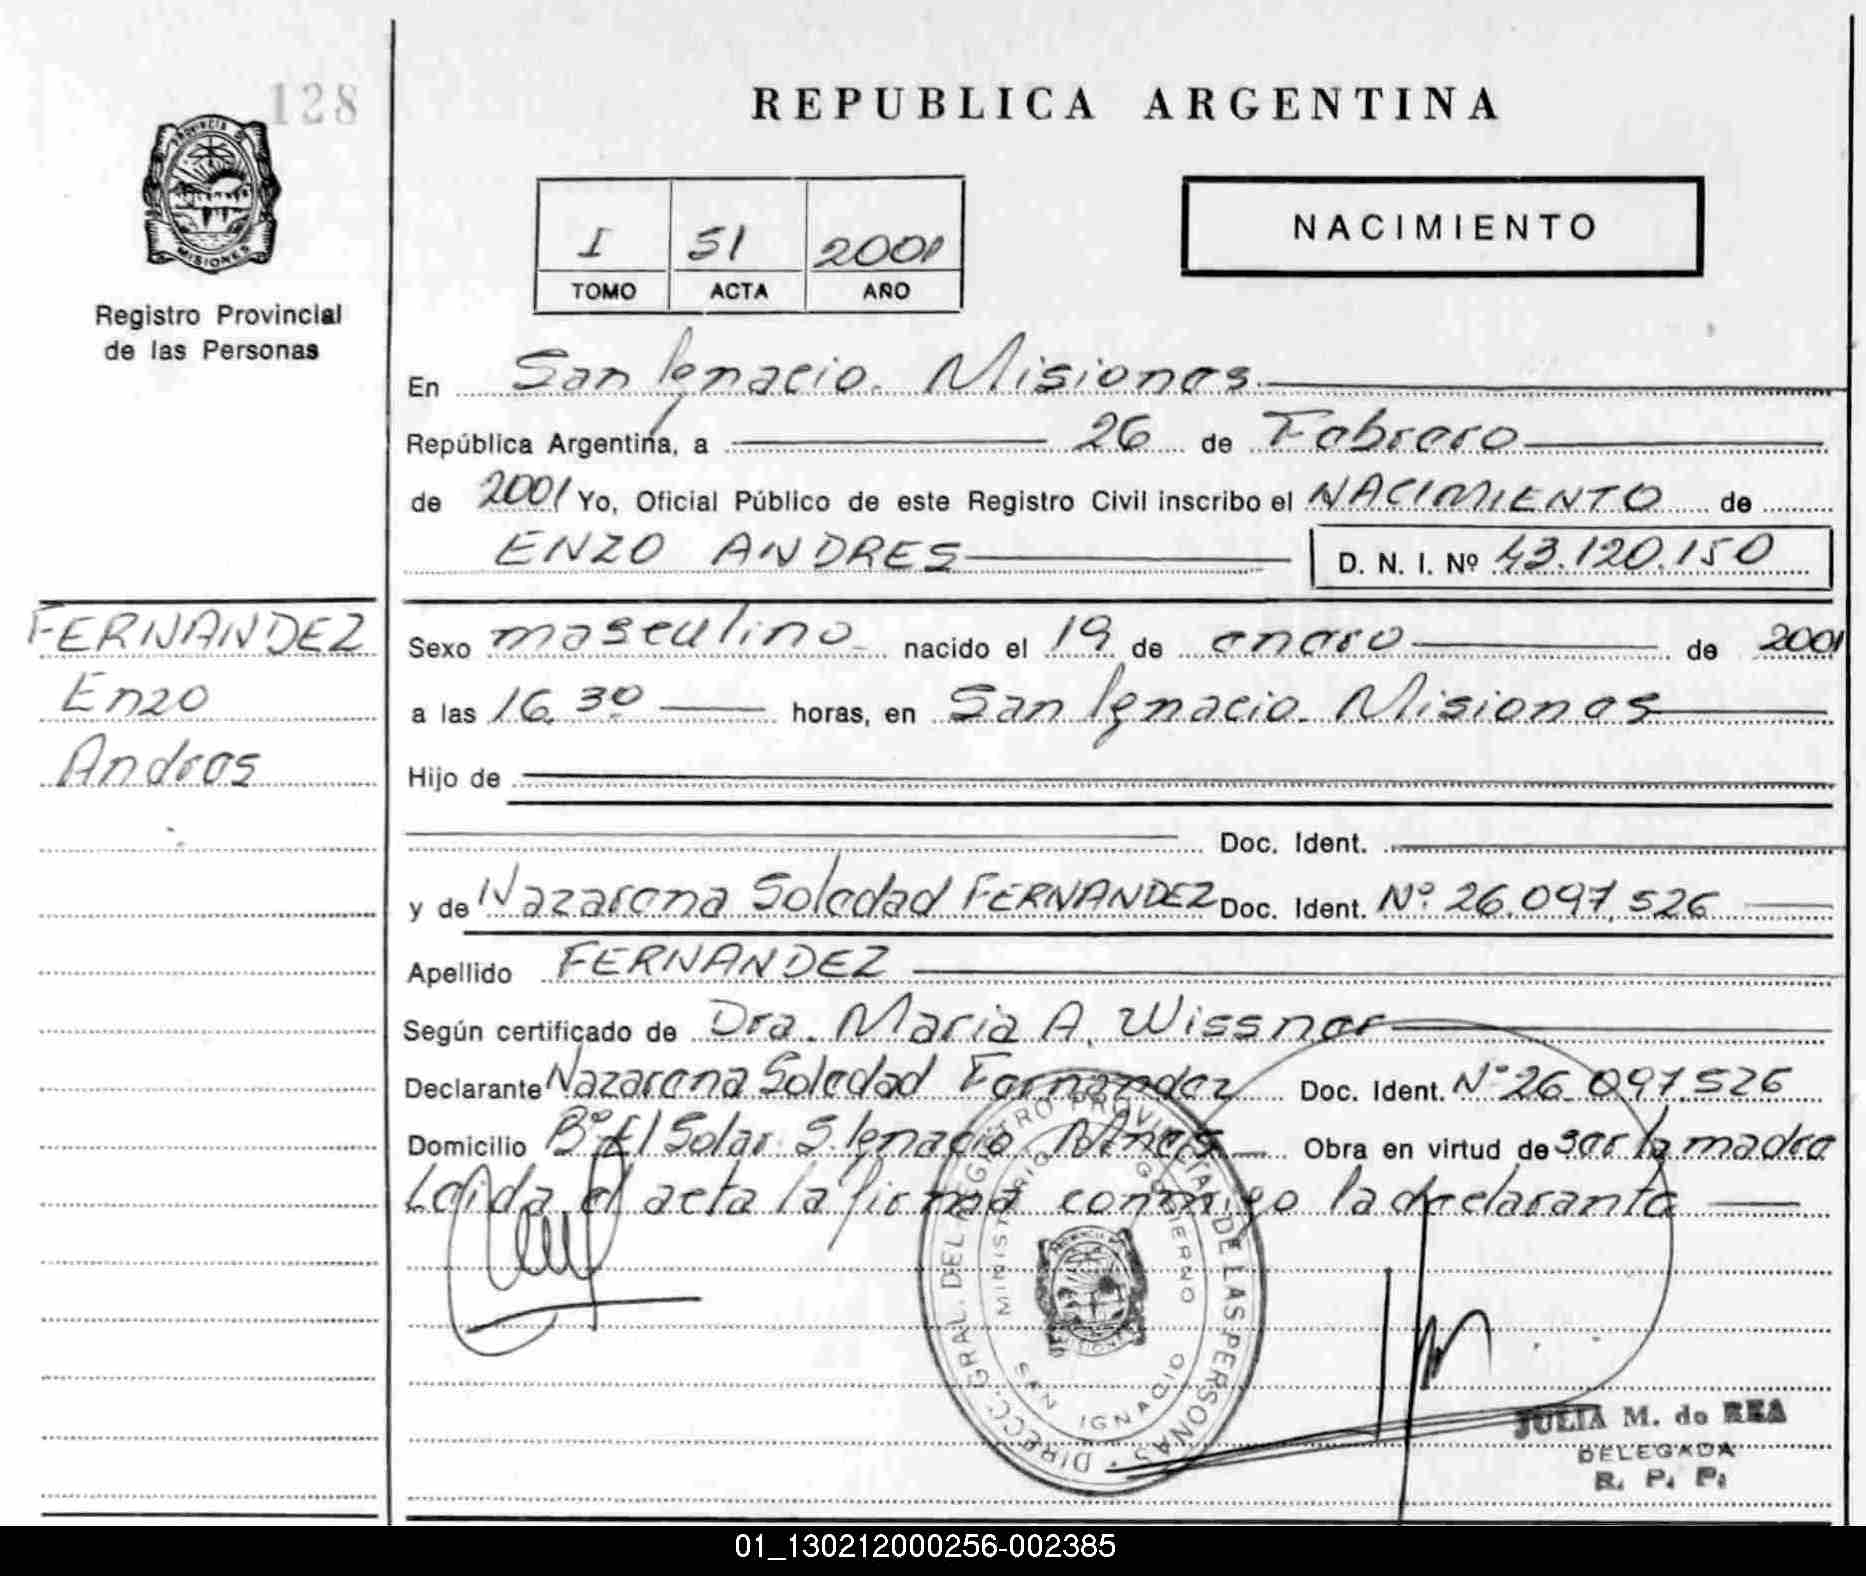 128
PROVINCIA DE
MISIONES
Registro Provincial
de las Personas
REPUBLICA ARGENTINA
I 51 2001
TOMO ACTA AÑO
NACIMIENTO
En San Ignacio. Misiones
República Argentina, a 26 de Febrero
de 2001 Yo, Oficial Público de este Registro Civil inscribo el NACIMIENTO de
ENZO ANDRES D. N. I. Nº 43.120.150
FERNANDEZ
Enzo
Andres
Sexo masculino nacido el 19 de enero de 2001
a las 16.30 horas, en San Ignacio. Misiones
Hijo de
Doc. Ident.
y de Nazarena Soledad FERNANDEZ Doc. Ident. Nº 26.097.526
Apellido FERNANDEZ
Según certificado de Dra. Maria A. Wissner
Declarante Nazarena Soledad Fernandez Doc. Ident. Nº 26.097.526
Domicilio Bº El Solar S. Ignacio Mnes Obra en virtud de ser la madre
Leida el acta la firma conmigo la declarante
DIRECC. GRAL. DEL REGISTRO PROVINCIAL DE LAS PERSONAS
MINISTERIO GOBIERNO
SAN IGNACIO
PROVINCIA DE
MISIONES
JULIA M. de REA
DELEGADA
R. P. P.
01_130212000256-002385